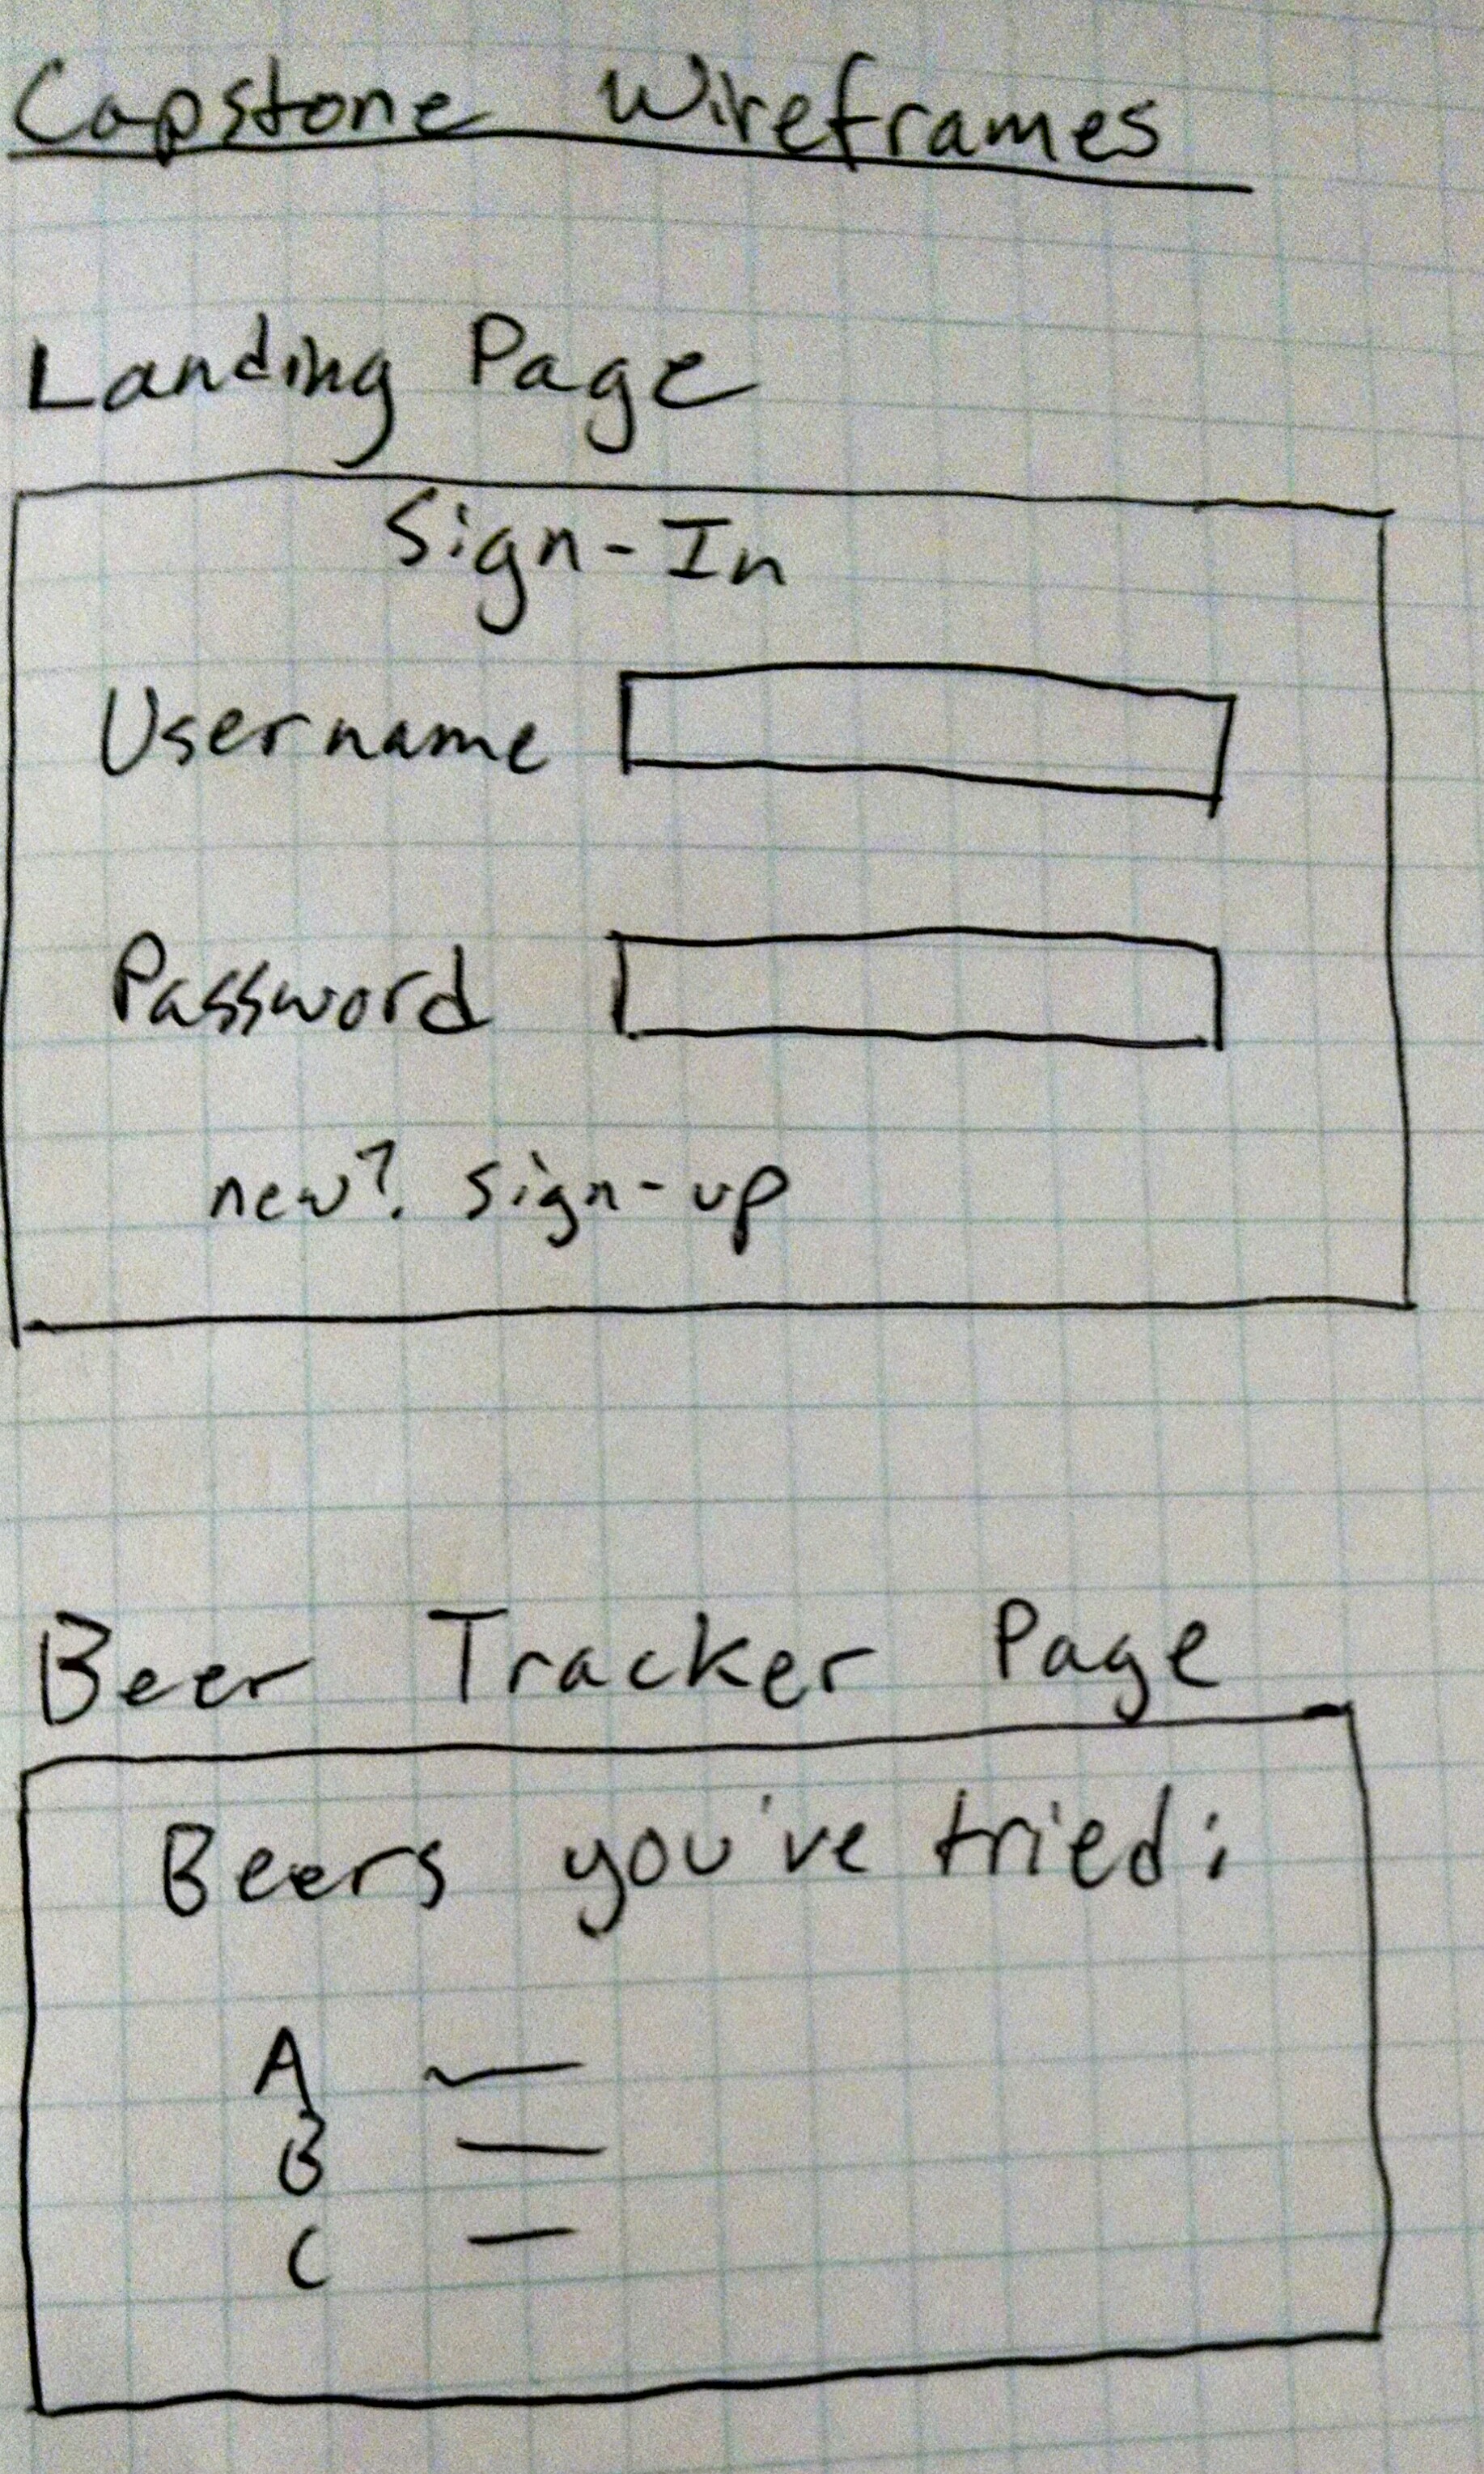 Capstone Wireframes
Landing Page
Sign-In
Username
Password
new? sign-up
Beer Tracker Page
Beers you've tried:
A
B
C